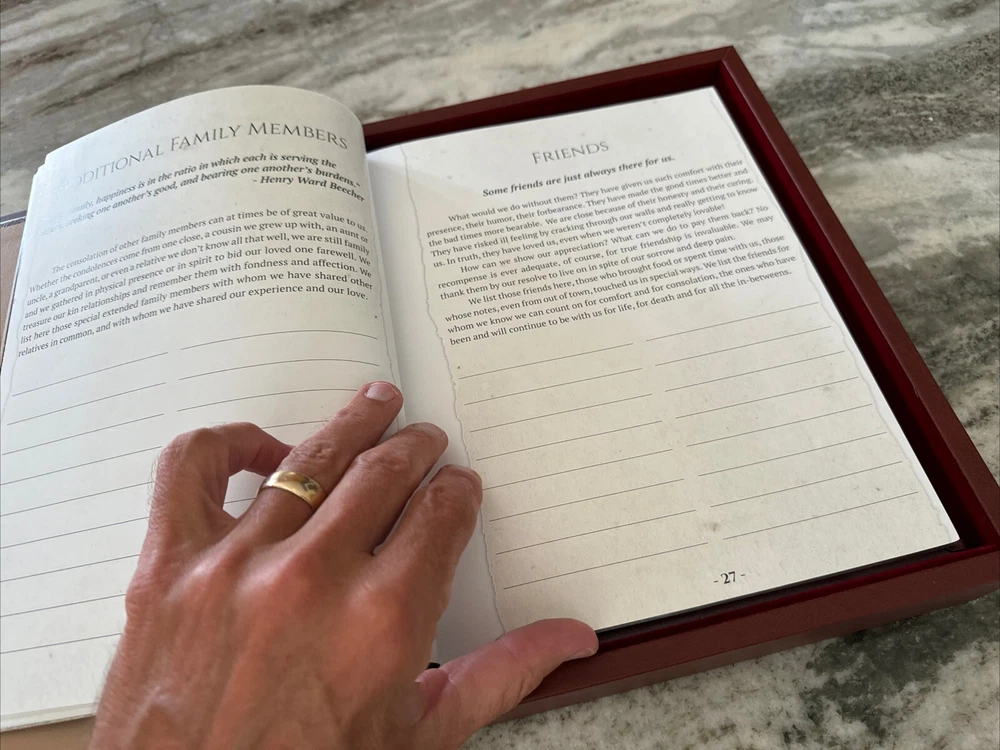 ADDITIONAL FAMILY MEMBERS
family, happiness is in the ratio in which each is serving the
seeking one another's good, and bearing one another's burdens."
- Henry Ward Beecher
The consolation of other family members can at times be of great value to us.
Whether the condolences come from one close, a cousin we grew up with, an aunt or
uncle, a grandparent, or even a relative we don't know all that well, we are still family
and we gathered in physical presence or in spirit to bid our loved one farewell. We
treasure our kin relationships and remember them with fondness and affection. We
list here those special extended family members with whom we have shared other
relatives in common, and with whom we have shared our experience and our love.
FRIENDS
Some friends are just always there for us.
What would we do without them? They have given us such comfort with their
presence, their humor, their forbearance. They have made the good times better and
the bad times more bearable. We are close because of their honesty and their caring.
They have risked ill feeling by cracking through our walls and really getting to know
us. In truth, they have loved us, even when we weren't completely lovable!
How can we show our appreciation? What can we do to pay them back? No
recompense is ever adequate, of course, for true friendship is invaluable. We may
thank them by our resolve to live on in spite of our sorrow and deep pain.
We list those friends here, those who brought food or spent time with us, those
whose notes, even from out of town, touched us in special ways. We list the friends for
whom we know we can count on for comfort and for consolation, the ones who have
been and will continue to be with us for life, for death and for all the in-betweens.
- 27 -